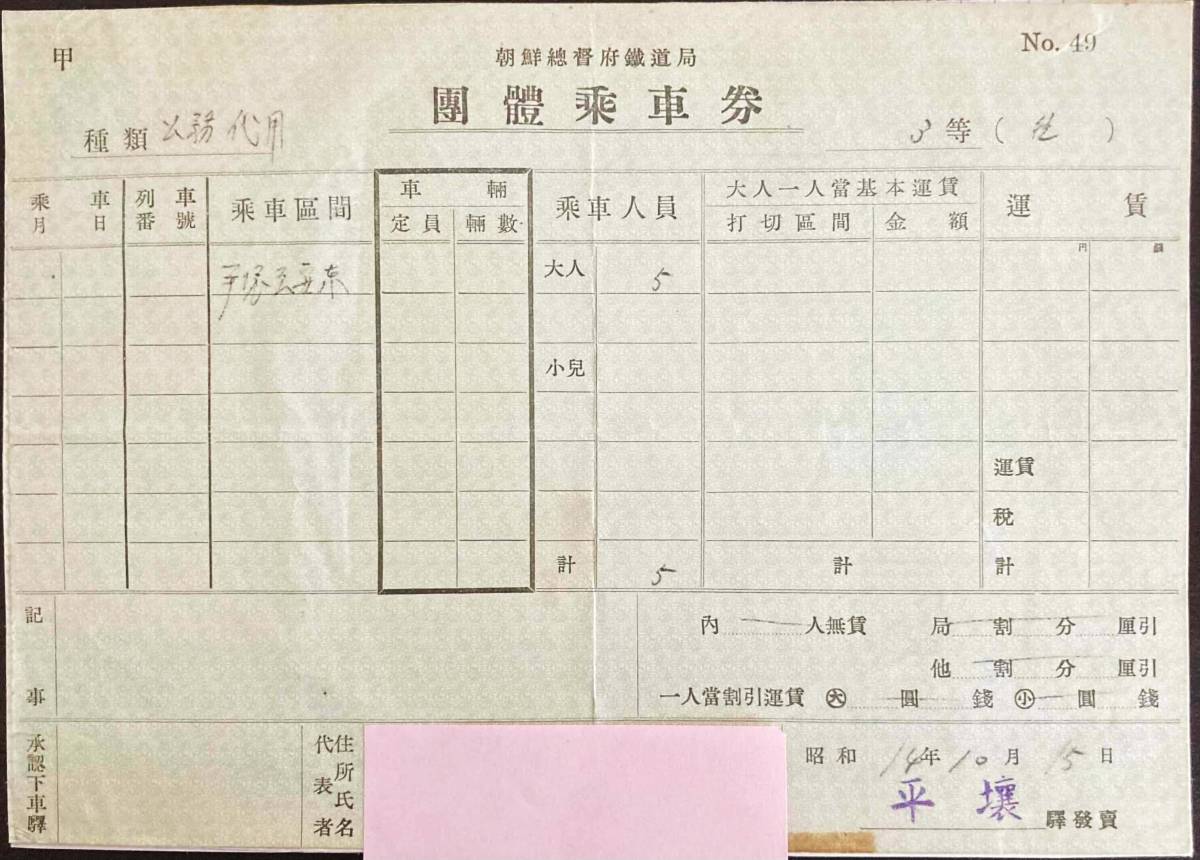 甲
No. 49
朝鮮總督府鐵道局
團體乘車券
種類 公務代用
3等( )
乘車月日 列車番號 乘車區間 車輛 乘車人員 大人一人當基本運賃 運賃
定員 輛數 打切區間 金額
円 錢
大人 5
小兒
運賃
稅
計 5 計 計
記事
內 人無賃 局 割 分 厘引
他 割 分 厘引
一人當割引運賃 大 圓 錢 小 圓 錢
承認下車驛
代表者 住所氏名
昭和 14年 10月 15日
平壤 驛發賣